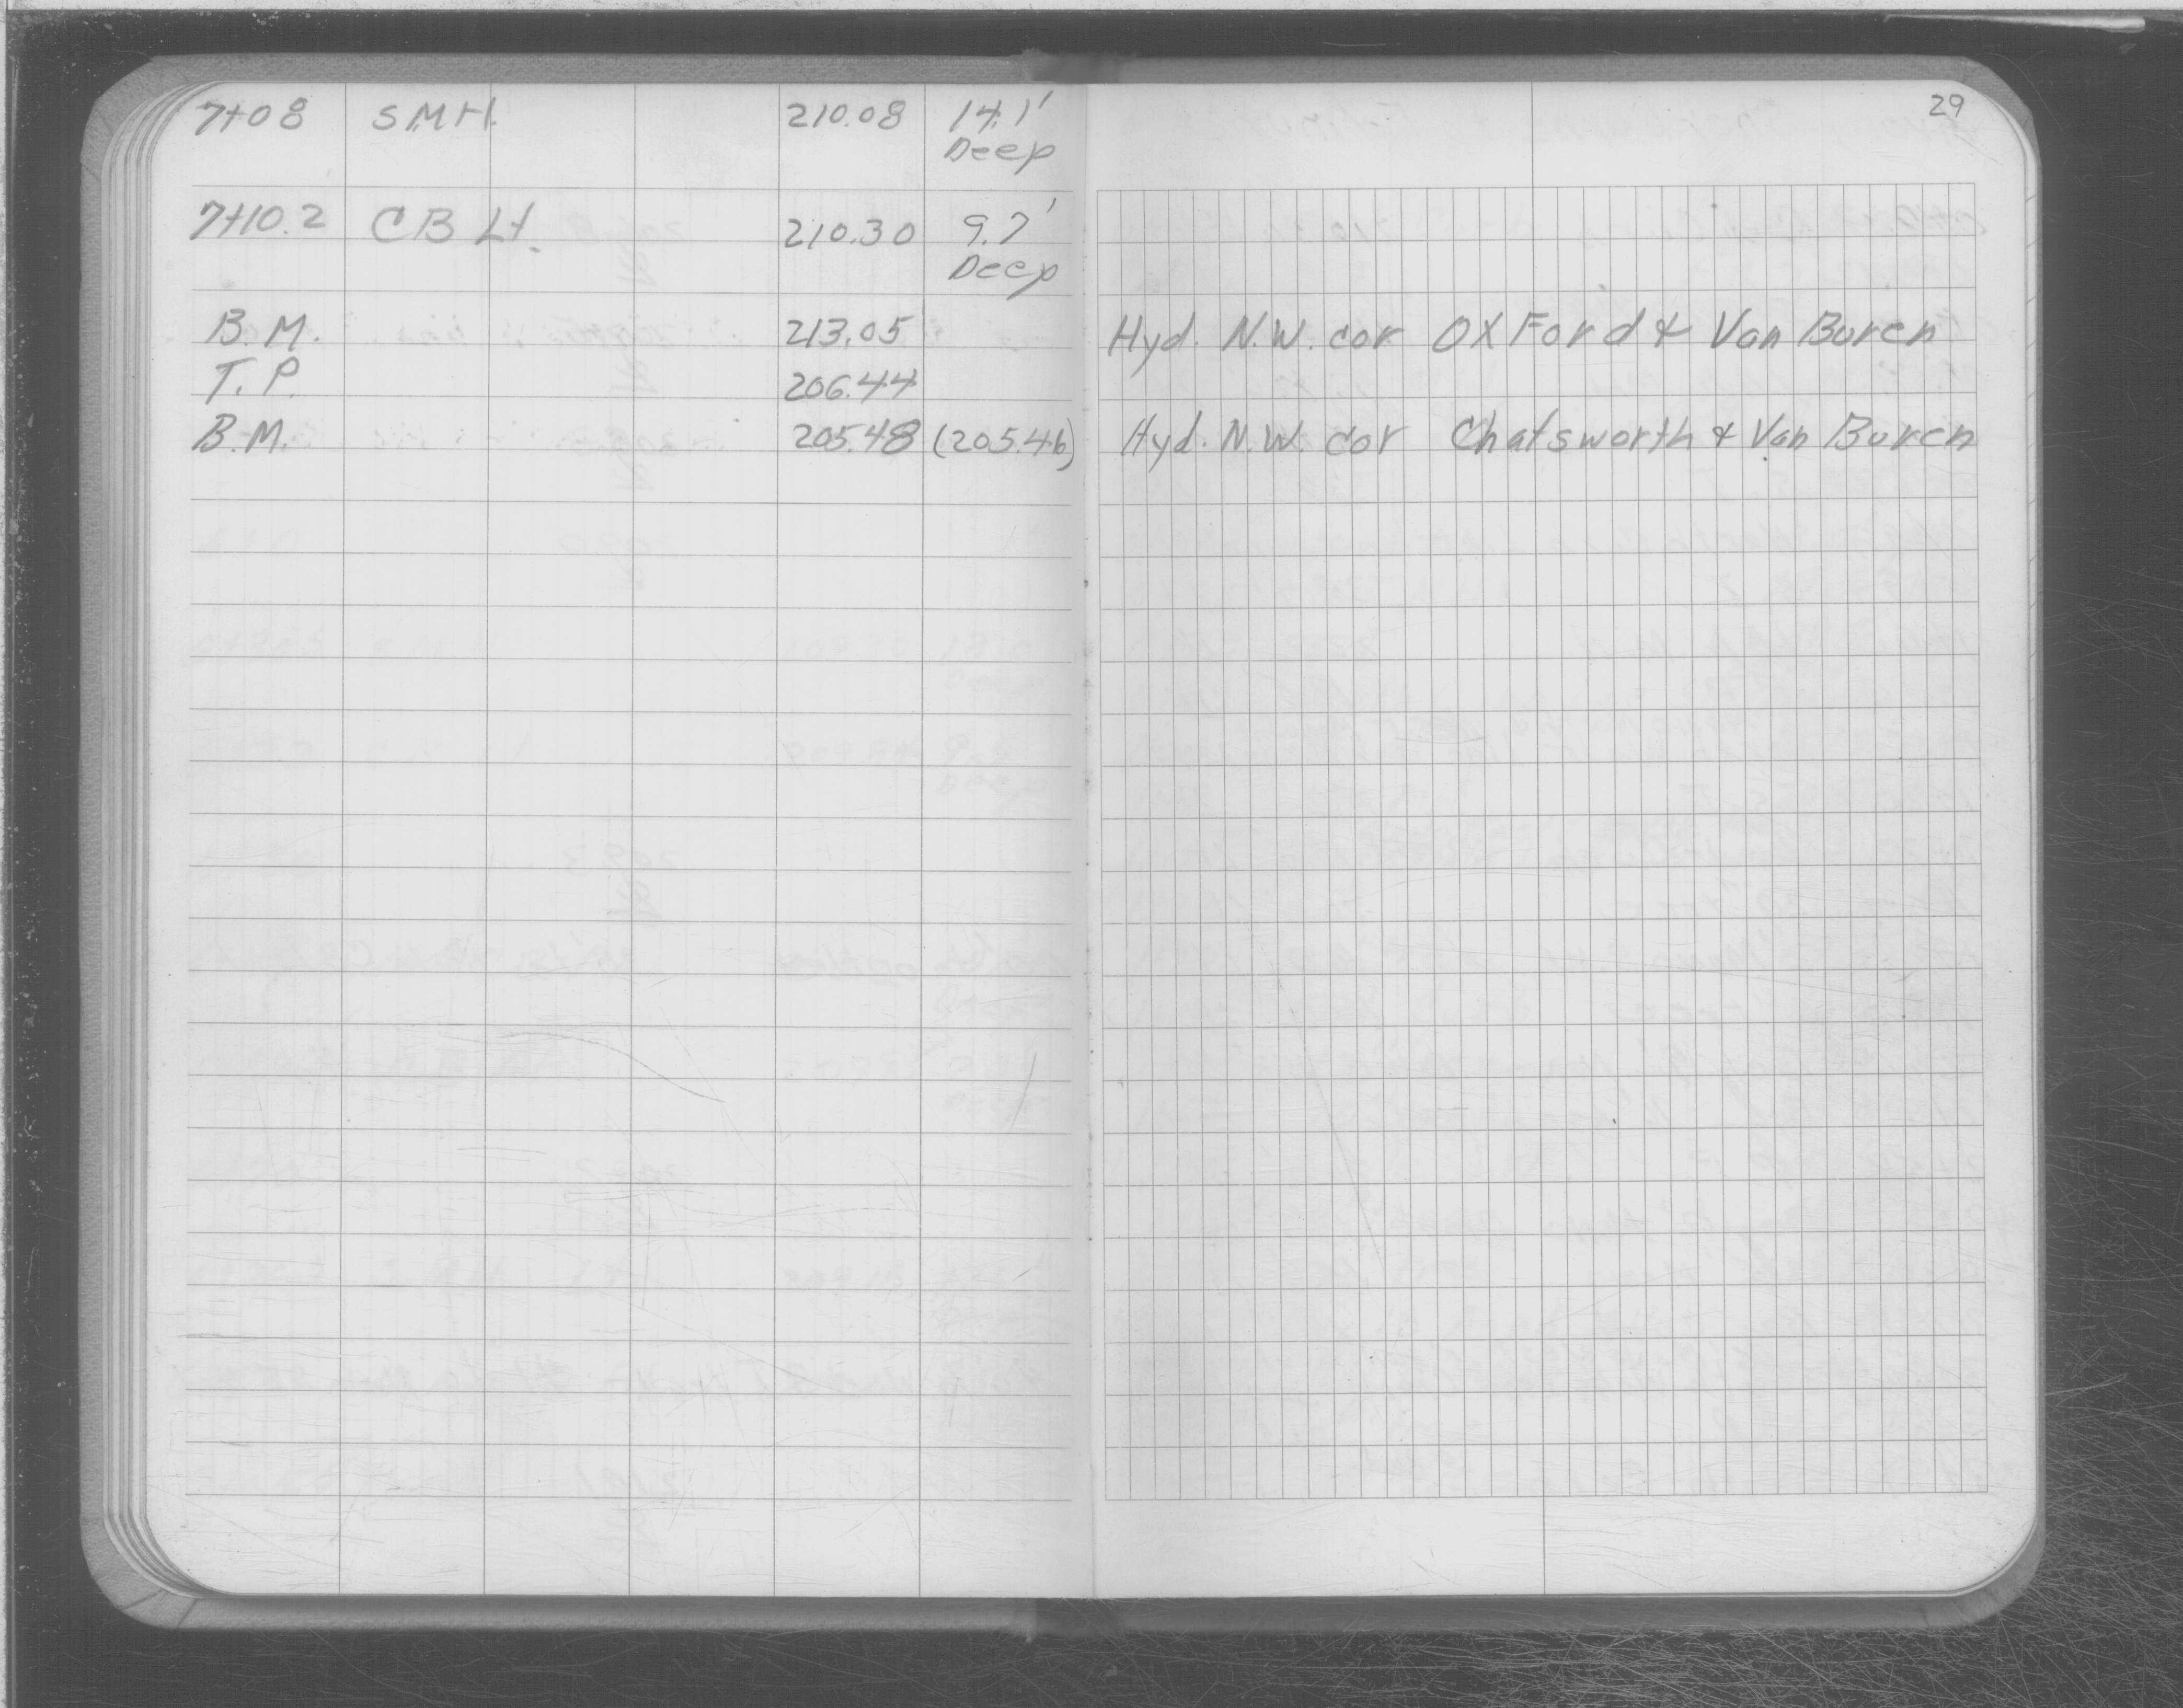 29
7+08 S.M.H. 210.08 14.1'
Deep
7+10.2 C B Lt. 210.30 9.7'
Deep
B.M. 213.05 Hyd. N.W. cor OXFord & Van Buren
T.P. 206.44
B.M. 205.48 (205.46) Hyd. N.W. cor Chatsworth & Van Buren